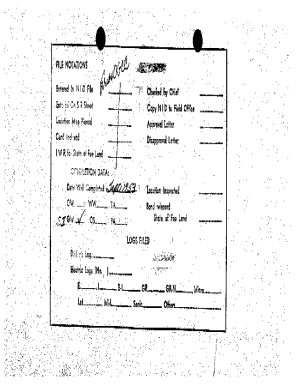 FILE NOTATIONS
Entered in N I D File ____ Checked by Chief ____
Entered On S R Sheet ____ Copy N I D to Field Office ____
Location Map Pinned ____ Approval Letter ____
Card Indexed ____ Disapproval Letter ____
I W R for State or Fee Land ____
COMPLETION DATA:
Date Well Completed Location Inspected ____
OW ____ WW ____ TA ____ Bond released
GW ____ OS ____ PA ____ State of Fee Land ____
LOGS FILED
Driller's Log ____
Electric Logs (No. ) ____
E ____ I ____ E-I ____ GR ____ GR-N ____ Micro ____
Lat ____ Mi-L ____ Sonic ____ Others ____